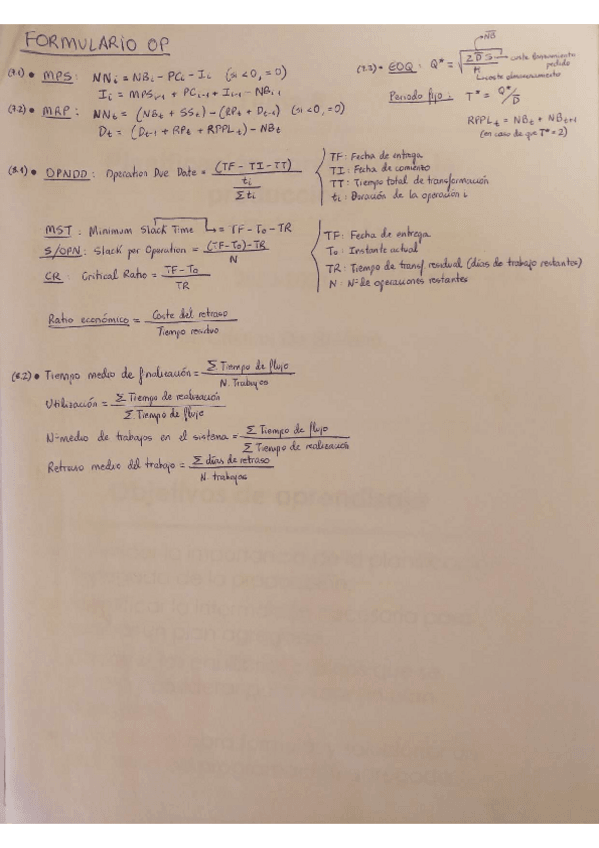 FORMULARIO OP
(7.1) • MPS: NNi = NBi - PCi - Ii (si <0, =0)
Ii = MPSi-1 + PCi-1 + Ii-1 - NBi-1
(7.2) • MRP: NNt = (NBt + SSt) - (RPt + Dt-1) (si <0, =0)
Dt = (Dt-1 + RPt + RPPLt) - NBt
(7.3) • EOQ: Q* = √(2 D S / H)
NB
coste lanzamiento pedido
coste almacenamiento
Periodo fijo: T* = Q*/D
RPPLt = NBt + NBt+1
(en caso de que T* = 2)
(8.1) • OPNDD: Operation Due Date = (TF - TI - TT) / (ti / Σti)
TF: Fecha de entrega
TI: Fecha de comienzo
TT: Tiempo total de transformación
ti: Duración de la operación i
MST: Minimum Slack Time → = TF - To - TR
S/OPN: Slack per Operation = (TF - To) - TR / N
CR: Critical Ratio = TF - To / TR
TF: Fecha de entrega
To: Instante actual
TR: Tiempo de transf. residual (días de trabajo restantes)
N: Nº de operaciones restantes
Ratio económico = Coste del retraso / Tiempo residuo
(8.2) • Tiempo medio de finalización = Σ Tiempo de flujo / N. Trabajos
Utilización = Σ Tiempo de realización / Σ Tiempo de flujo
Nº medio de trabajos en el sistema = Σ Tiempo de flujo / Σ Tiempo de realización
Retraso medio del trabajo = Σ días de retraso / N. trabajos
Objetivos de aprendizaje